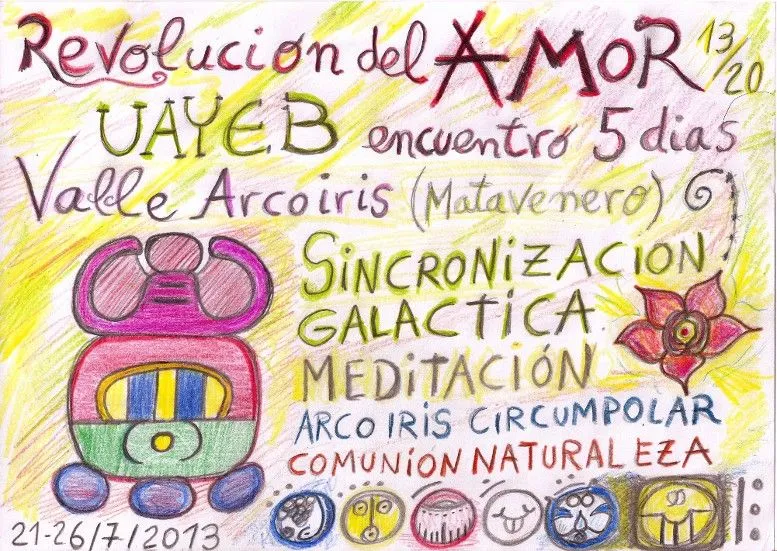 Revolución del AMOR 13/20
UAYEB encuentro 5 dias
Valle Arcoiris (Matavenero)
SINCRONIZACION
GALACTICA
MEDITACIÓN
ARCO IRIS CIRCUMPOLAR
COMUNION NATURALEZA
21-26/7/2013